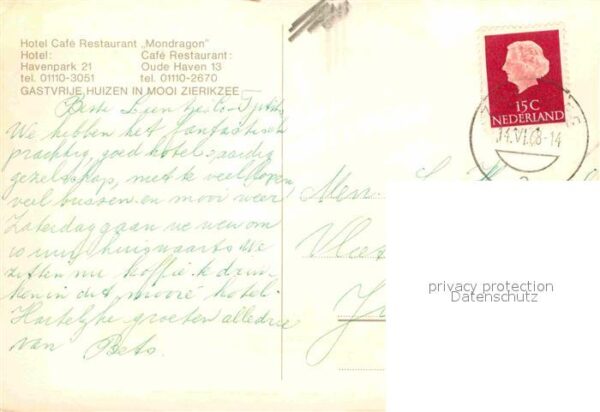 Hotel Café Restaurant „Mondragon"
Hotel: Café Restaurant:
Havenpark 21 Oude Haven 13
tel. 01110-3051 tel. 01110-2670
GASTVRIJE HUIZEN IN MOOI ZIERIKZEE
Beste
We hebben het fantastisch
prachtig, goed hotel, aardig
gezelschap, niet te veel lopen
veel bussen en mooi weer
Zaterdag gaan we weer om
10 uur huiswaarts. We
zitten nu koffie te drin-
ken in dit mooie hotel.
Hartelijke groeten alledrie
van Bets.
15 C
NEDERLAND
14.VI.68-14
Men.
privacy protection
Datenschutz